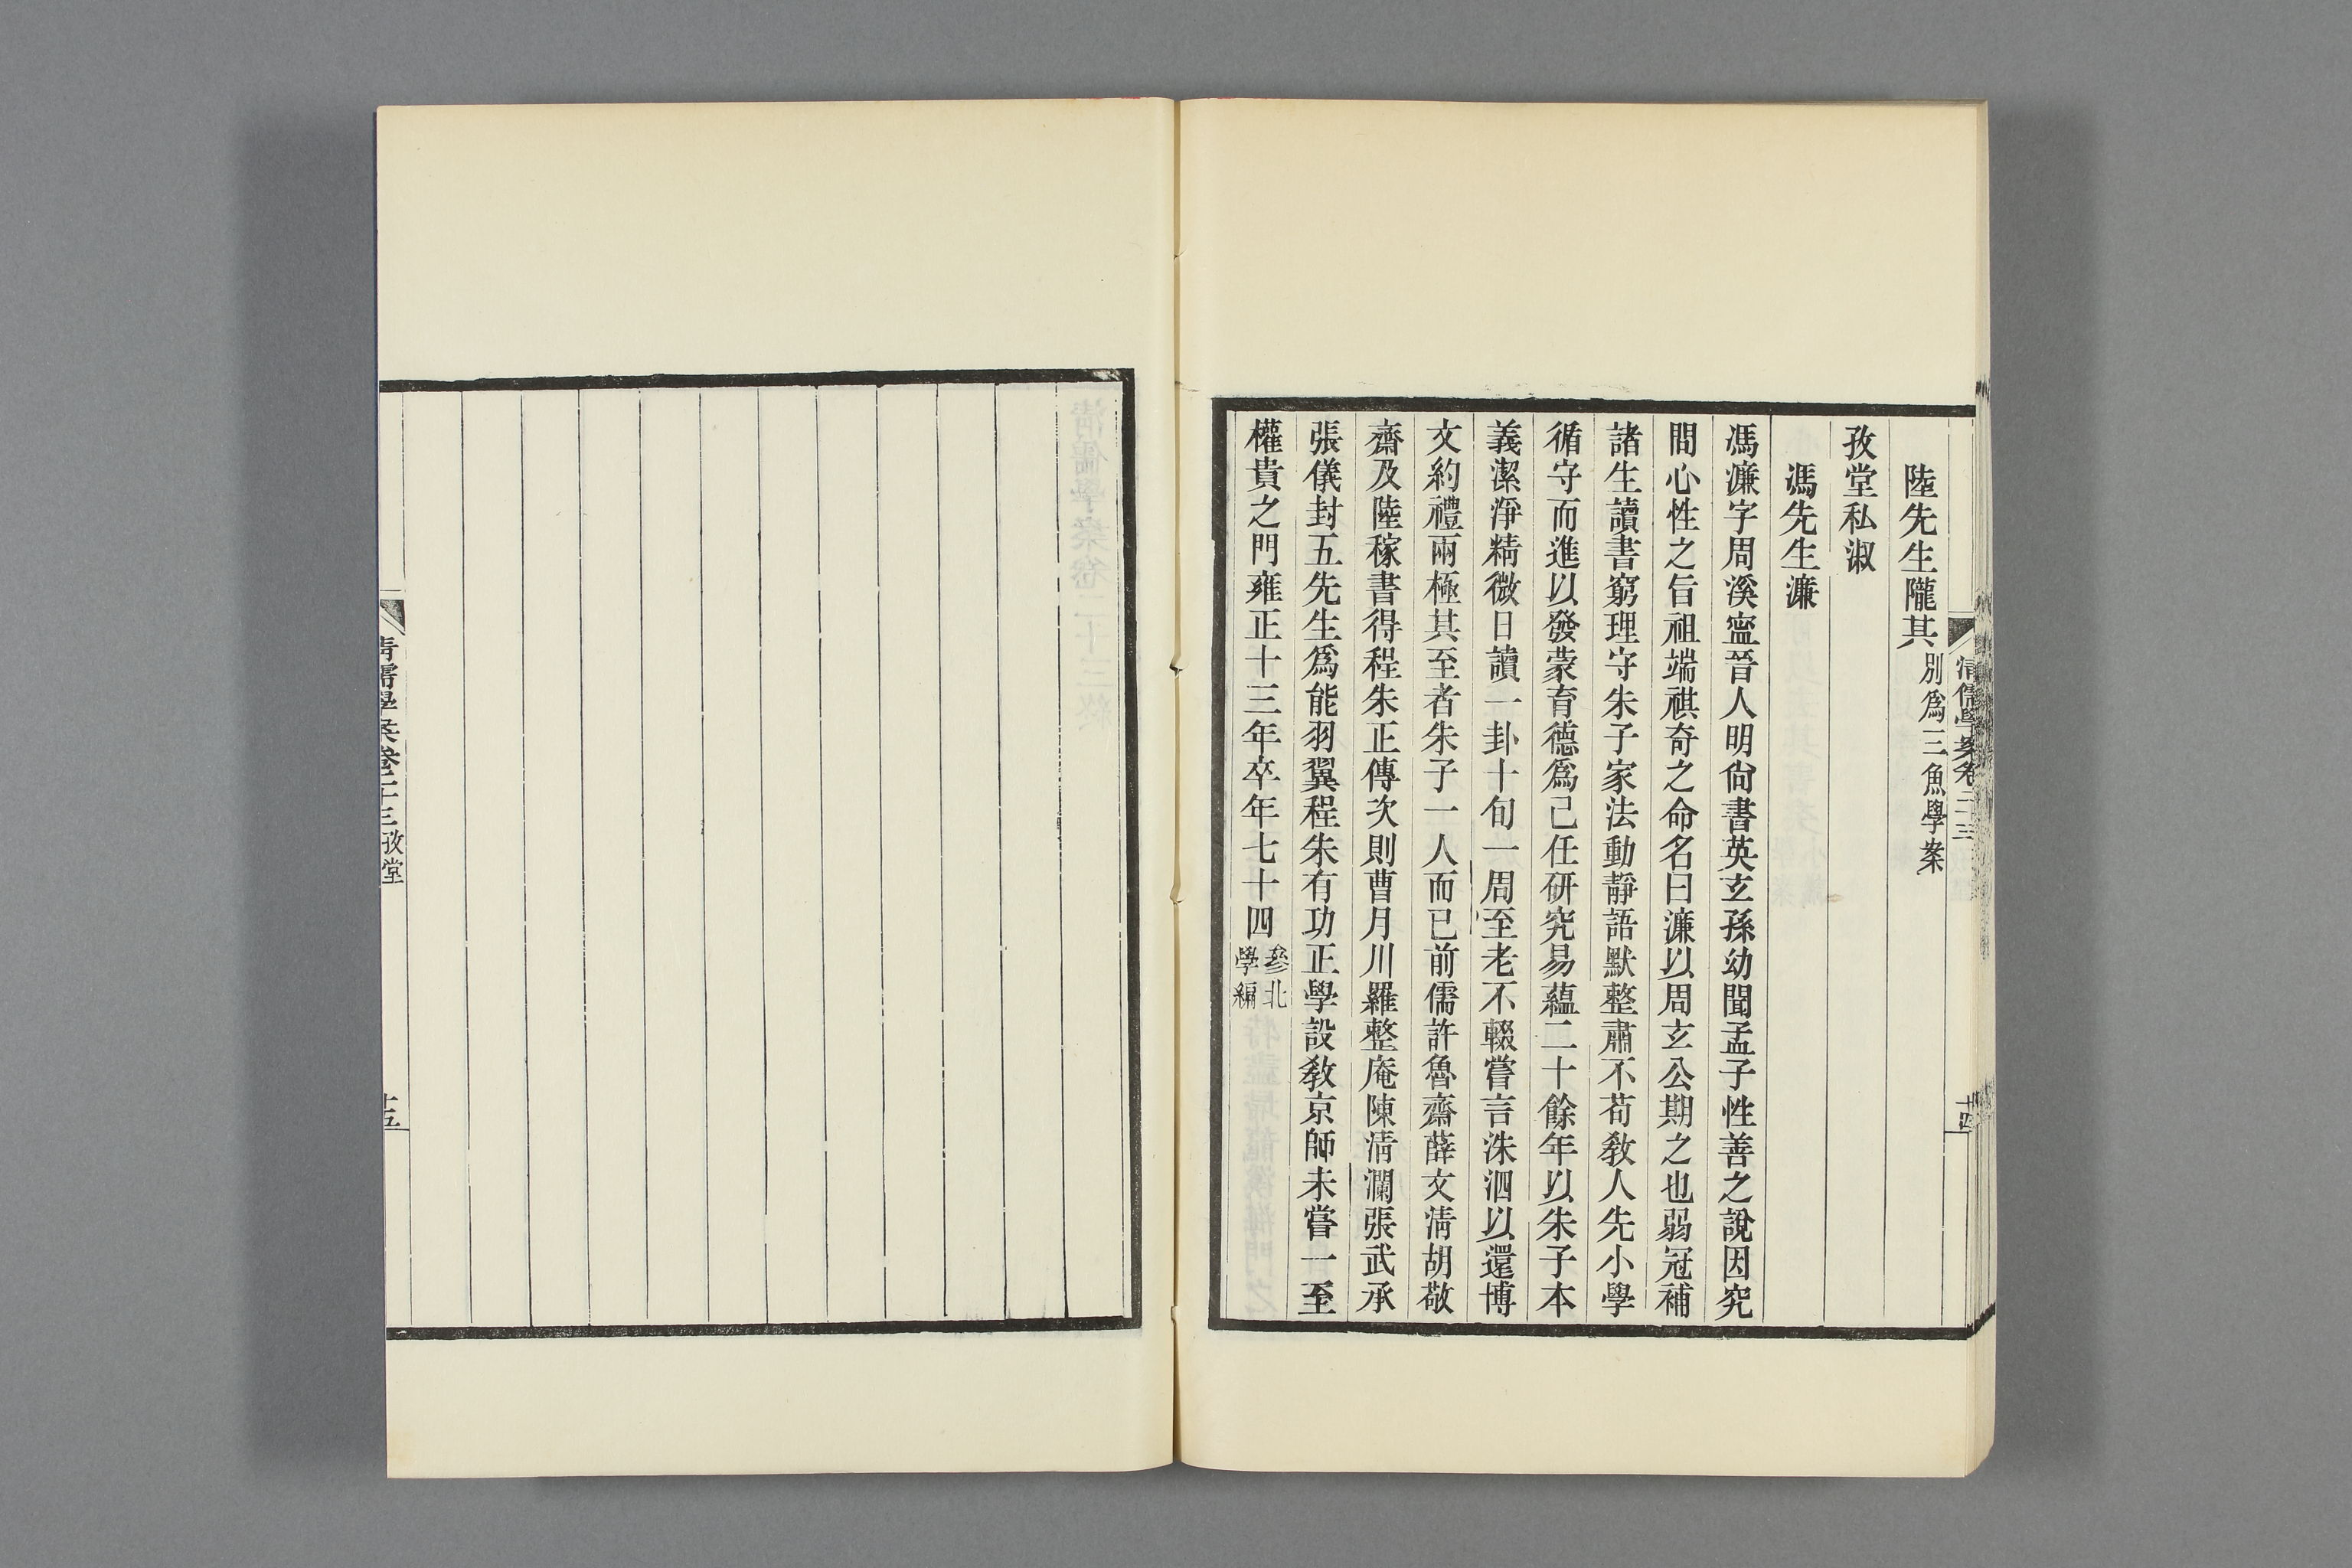 清儒學案卷二十三
十四
陸先生隴其別爲三魚學案
孜堂私淑
馮先生濂
馮濂字周溪寍晉人明尙書英玄孫幼聞孟子性善之說因究
問心性之旨祖端祺奇之命名曰濂以周玄公期之也弱冠補
諸生讀書窮理守朱子家法動靜語默整肅不苟敎人先小學
循守而進以發蒙育德爲己任硏究易蘊二十餘年以朱子本
義潔淨精微日讀一卦十旬一周至老不輟嘗言洙泗以還博
文約禮兩極其至者朱子一人而已前儒許魯齋薛文淸胡敬
齋及陸稼書得程朱正傳次則曹月川羅整庵陳淸瀾張武承
張儀封五先生爲能羽翼程朱有功正學設敎京師未嘗一至
權貴之門雍正十三年卒年七十四參北學編
清儒學案卷二十三 孜堂
十五